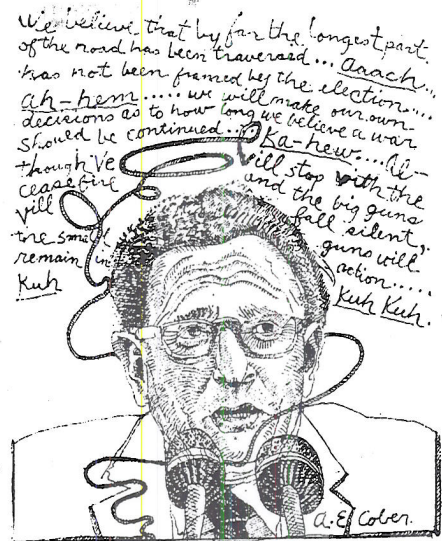 We believe that by far the longest part
of the road has been traversed... aaach...
has not been framed by the election....
ah-hem..... we will make our own
decisions as to how long we believe a war
should be continued...
Ka-hew.... Al-
though ve vill stop with the
ceasefire and the big guns
vill fall silent,
the small guns vill
remain in action.....
Kuh Kuh Kuh.
A.E. Cober.